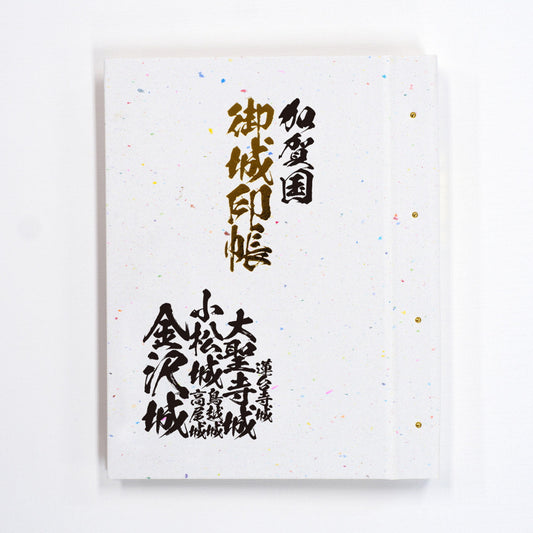 加賀国
御城印帳
蓮台寺城
大聖寺城
鳥越城
高尾城
小松城
金沢城